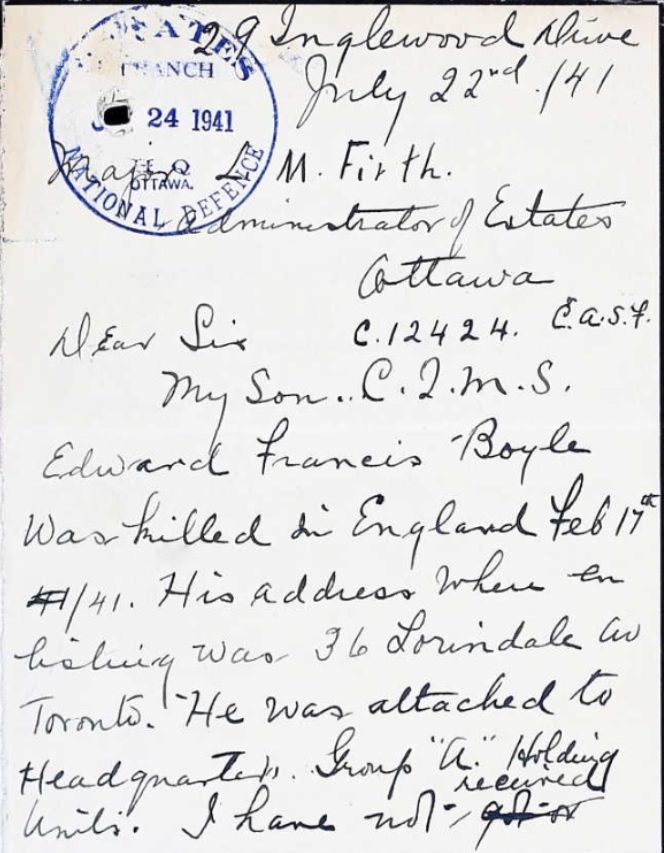 29 Inglewood Drive
July 22nd /41
ESTATES
BRANCH
24 1941
H Q
OTTAWA.
NATIONAL DEFENCE
Major L M. Firth.
Administrator of Estates
Ottawa
Dear Sir
C.12424. C.A.S.F.
My Son.. C.Q.M.S.
Edward Francis Boyle
Was killed in England Feb 17th
/41. His address when en
listing was 36 Lorindale Av
Toronto. He was attached to
Headquarters. Group "A." Holding
Units. I have not received